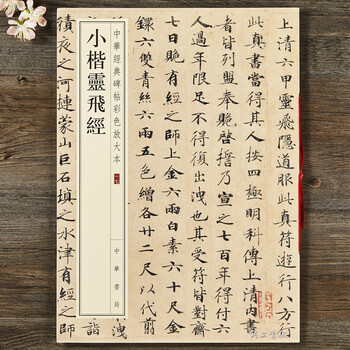 上清六甲靈飛隱道服此真符遊行八方行
此真書當得其人按四極明科傳上清內書
者皆列盟奉貺啓誓乃宣之七百年得付六
人過年限足不得復出洩也其受符皆對齋
七日貺有經之師上金六兩白素六十尺金
鐶六雙青絲六兩五色繒各廿二尺以代翦
中華經典碑帖彩色放大本
小楷靈飛經
中華書局
洩
詣
積夜之河摙蒙山巨石填之水津有經之師